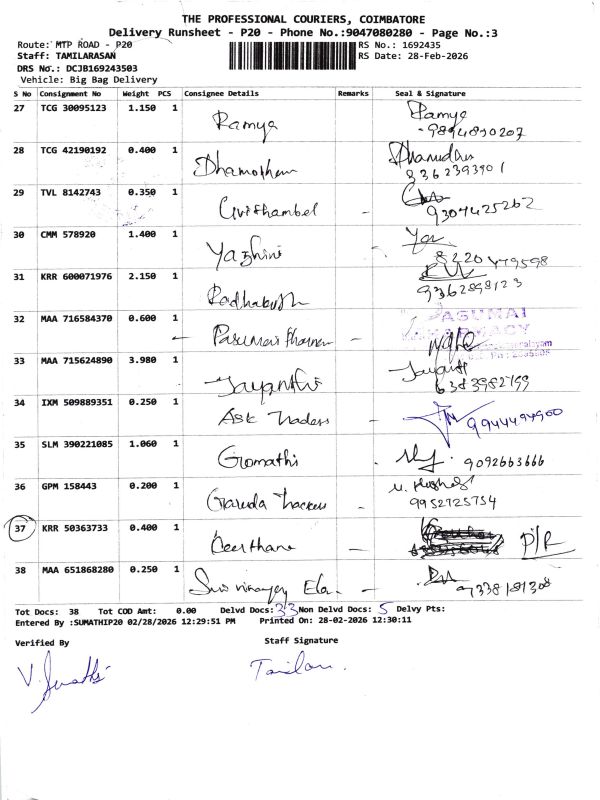 THE PROFESSIONAL COURIERS, COIMBATORE
Delivery Runsheet - P20 - Phone No.:9047080280 - Page No.:3
Route: MTP ROAD - P20
RS No.: 1692435
Staff: TAMILARASAN
RS Date: 28-Feb-2026
DRS No.: DCJB169243503
Vehicle: Big Bag Delivery
S No Consignment No Weight PCS Consignee Details Remarks Seal & Signature
27 TCG 30095123 1.150 1 Ramya Ramya
28 TCG 42190192 0.400 1
29 TVL 8142743 0.350 1 - 9307425262
30 CMM 578920 1.400 1 Yazhini - 8220479598
31 KRR 600071976 2.150 1 9362898123
32 MAA 716584370 0.600 1 PASUMAI
PHARMACY
33 MAA 715624890 3.980 1 Jayanthi Jayanthi
6383982799
34 IXM 509889351 0.250 1 Ask Traders - 9944494900
35 SLM 390221085 1.060 1 Gomathi - 9092663666
36 GPM 158443 0.200 1 Garuda
9952725754
37 KRR 50363733 0.400 1 Keerthana - P/R
38 MAA 651868280 0.250 1 - 9338181308
Tot Docs: 38 Tot COD Amt: 0.00 Delvd Docs: 33 Non Delvd Docs: 5 Delvy Pts:
Entered By :SUMATHIP20 02/28/2026 12:29:51 PM Printed On: 28-02-2026 12:30:11
Verified By Staff Signature